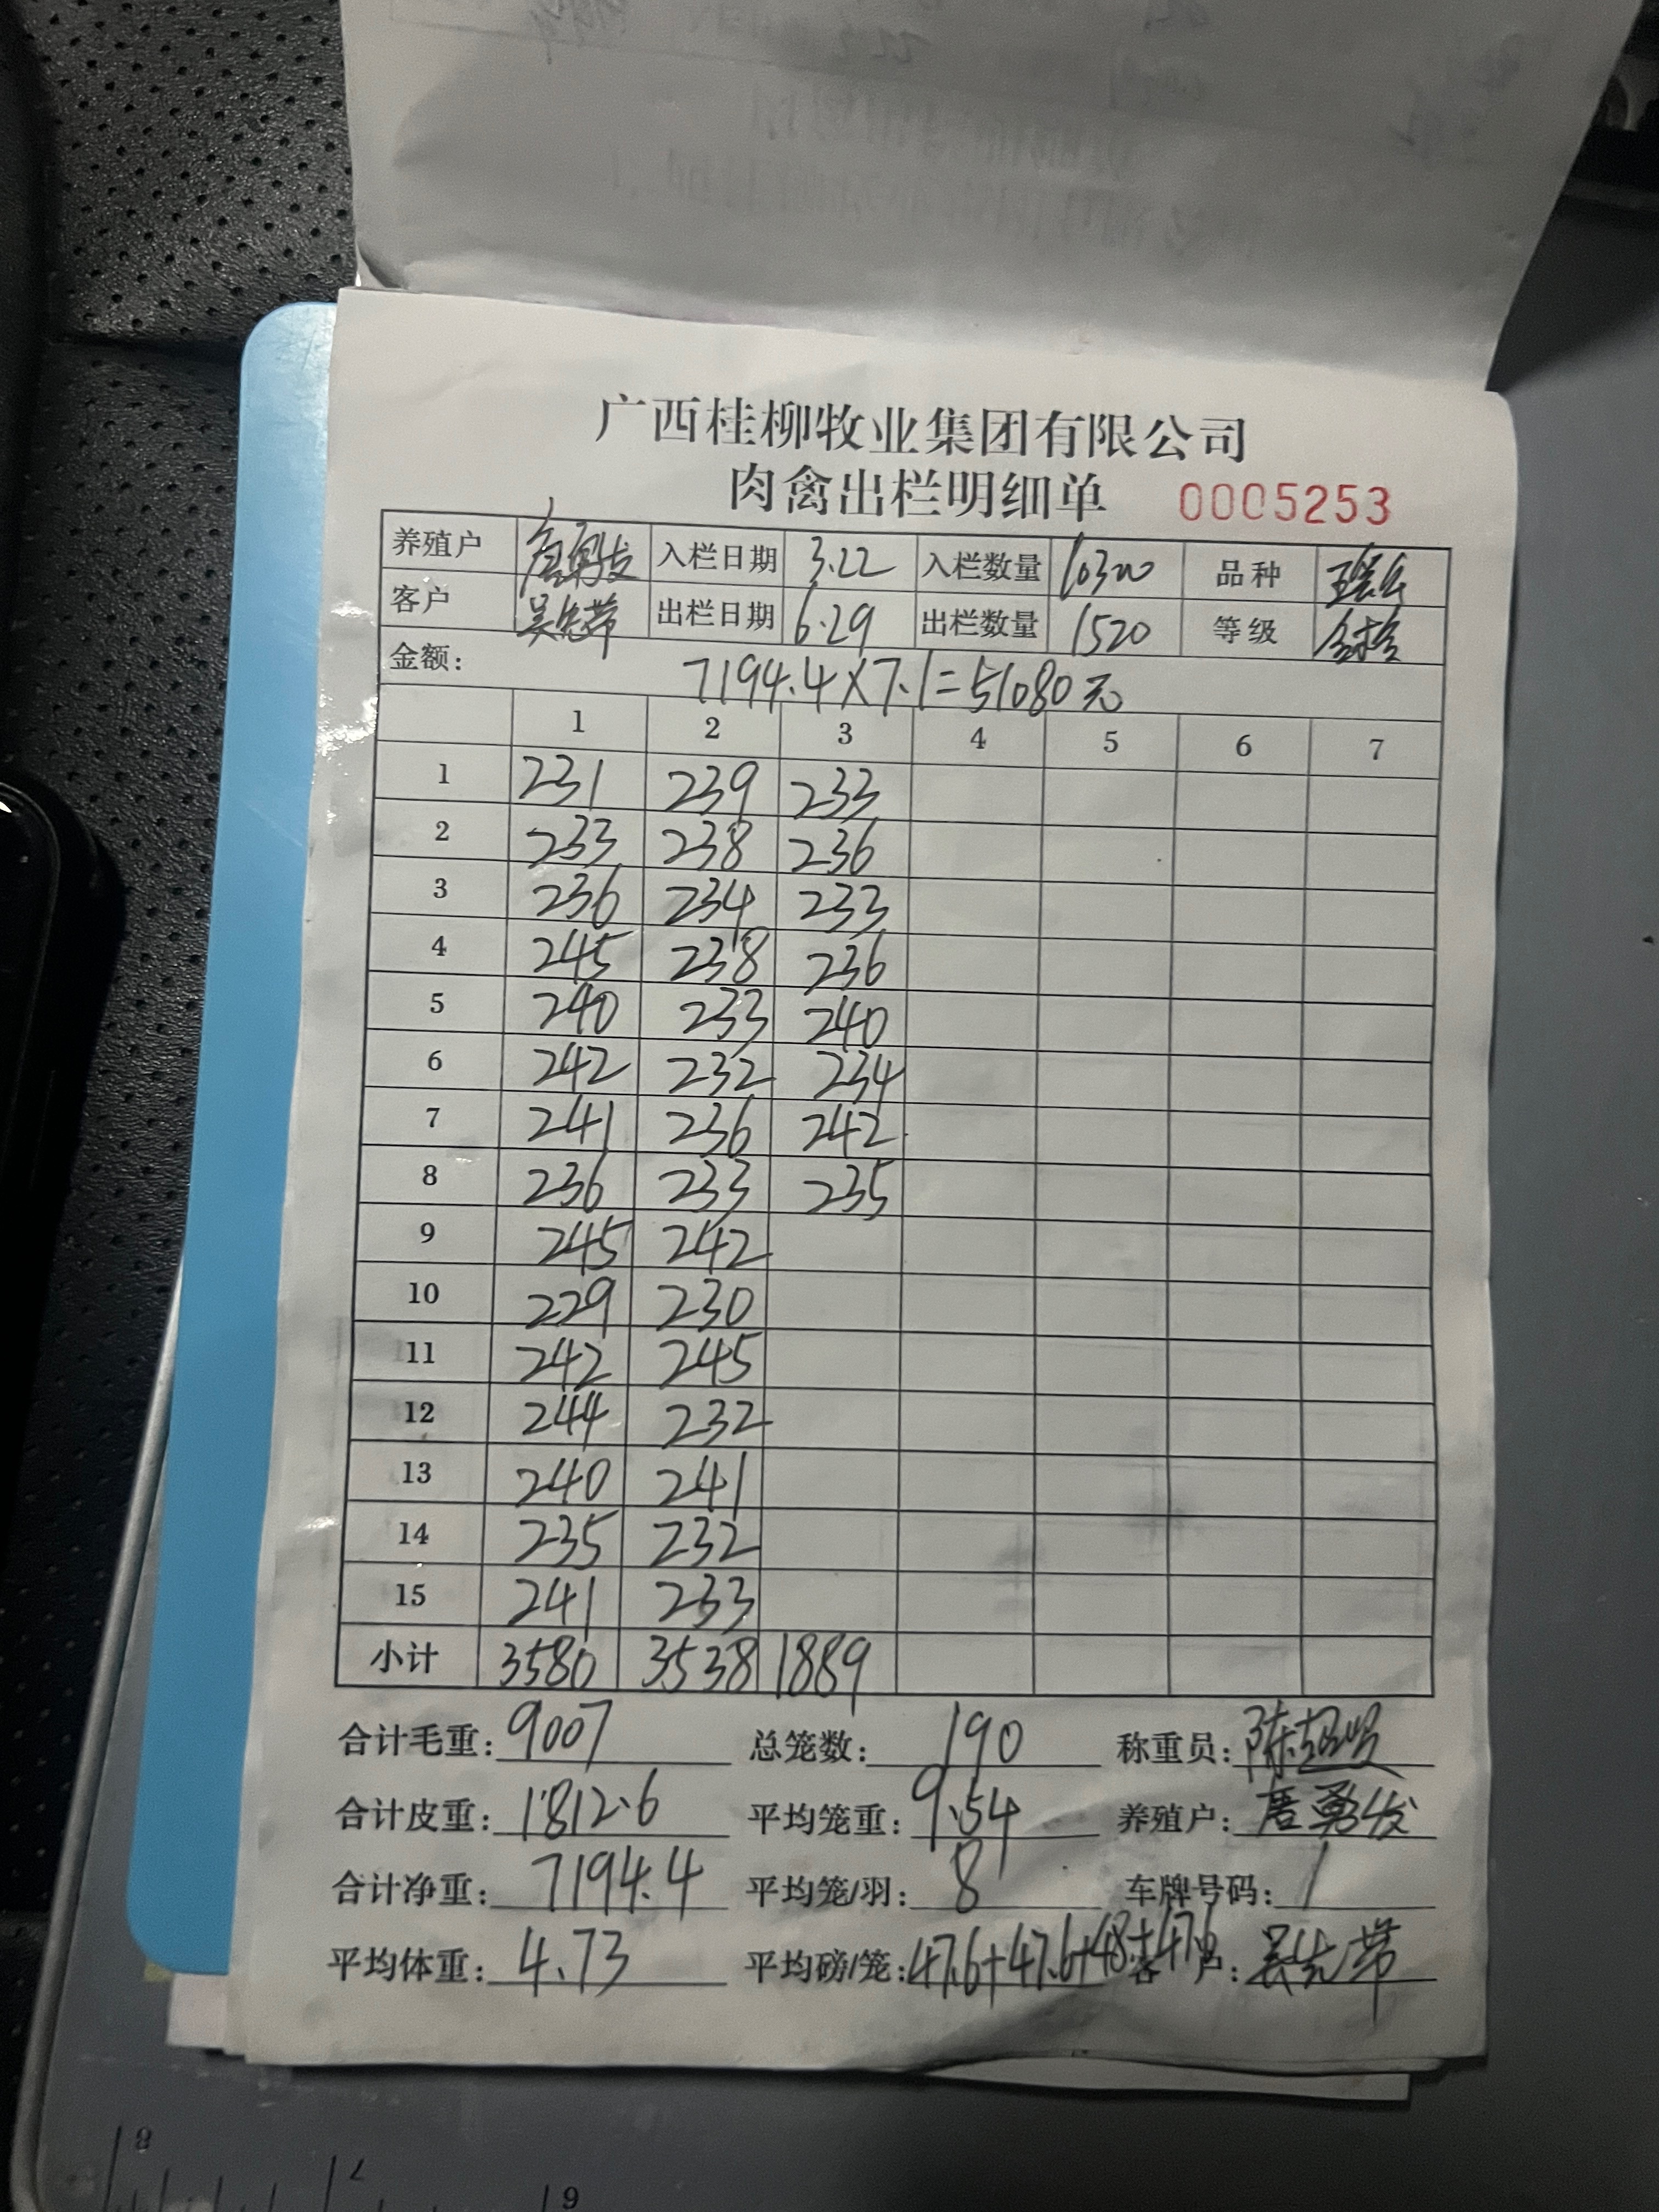 广西桂柳牧业集团有限公司
肉禽出栏明细单 0005253
养殖户 唐勇发 入栏日期 3.22 入栏数量 10300 品种
客户 吴先带 出栏日期 6.29 出栏数量 1520 等级
金额: 7194.4×7.1=51080元
1 2 3 4 5 6 7
1 231 239 233
2 233 238 236
3 236 234 233
4 245 238 236
5 240 233 240
6 242 232 234
7 241 236 242
8 236 233 235
9 245 242
10 229 230
11 242 245
12 244 232
13 240 241
14 235 232
15 241 233
小计 3580 3538 1889
合计毛重: 9007 总笼数: 190 称重员: 陈
合计皮重: 1812.6 平均笼重: 9.54 养殖户: 唐勇发
合计净重: 7194.4 平均笼/羽: 8 车牌号码: 1
平均体重: 4.73 平均磅/笼: 47.6+47.6+48+47.6 客户: 吴先带
8
7
6